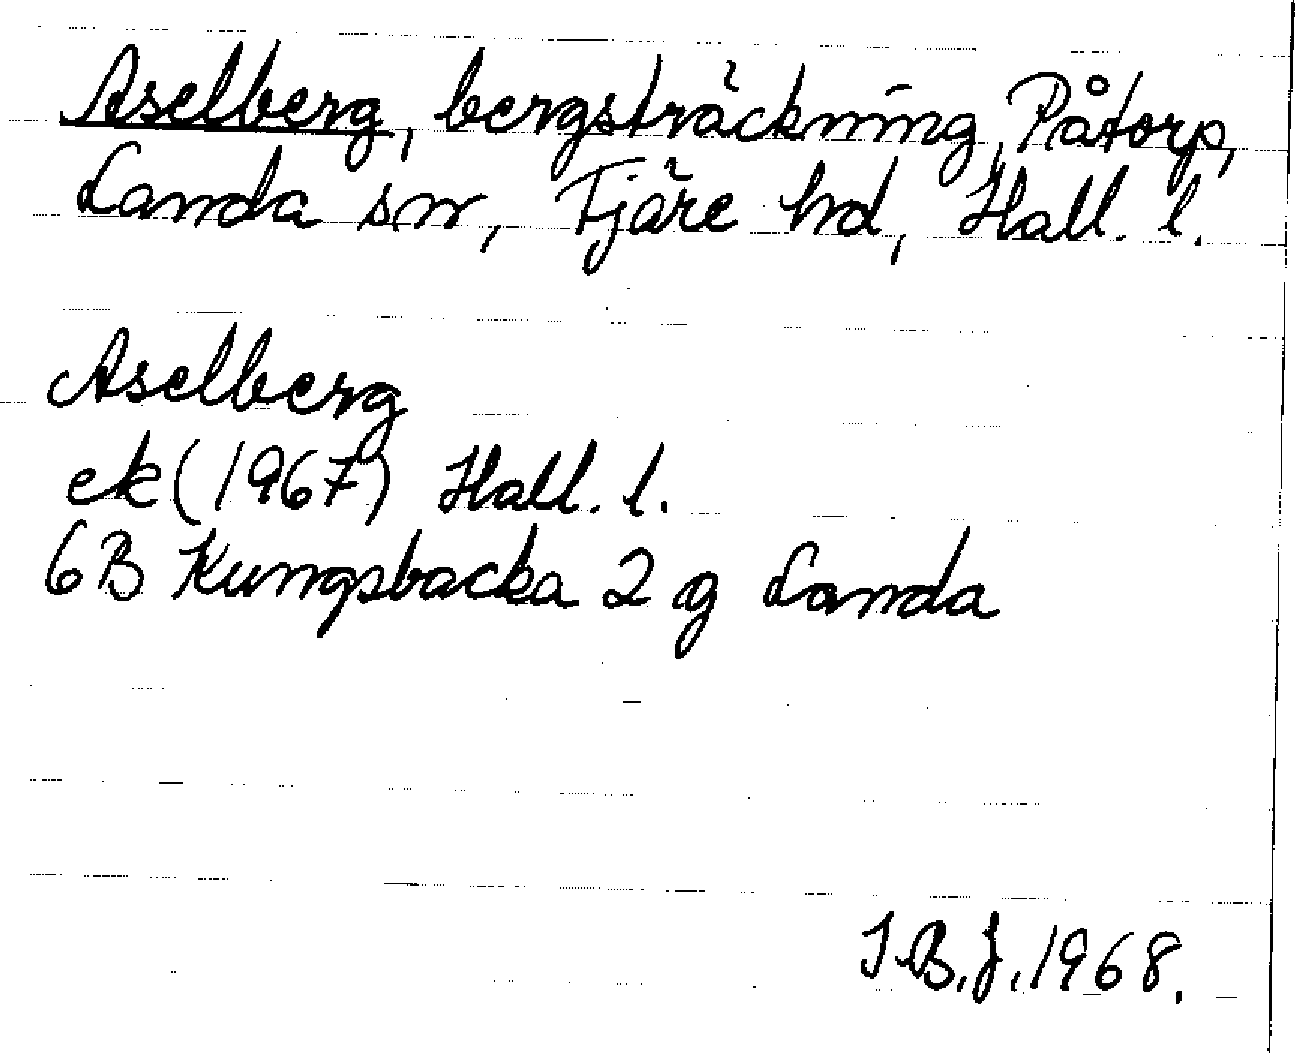 Aselberg, bergsträckning, Påtorp,
Landa sn, Fjäre hd, Hall. l.
Aselberg
ek (1967) Hall. l.
6B Kungsbacka 2 g Landa
I.B.J. 1968.